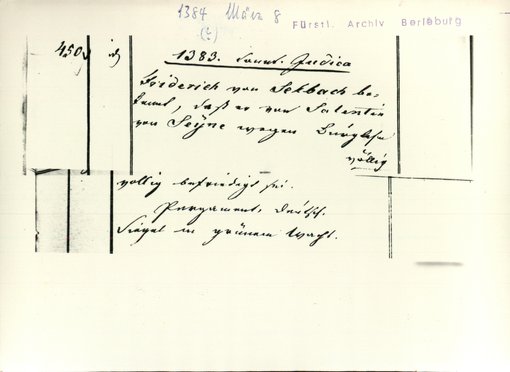 1384 März 8
(?)
Fürstl. Archiv Berleburg
450
1383. Sonnt. Judica
Friderich von Selbach be-
kennt, daß er von Salentin
von Seyne wegen Burglehn
völlig
völlig befriedigt sei.
Pergament, deutsch.
Siegel in grünem Wachs.